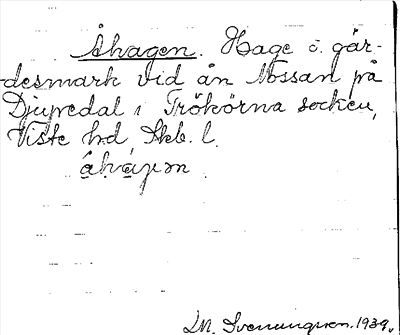 Åhagen. Hage o. går-
desmark vid ån Nossan på
Djupedal i Trökörna socken,
Viste hd, Skb. l.
M. Svenungsson. 1939.